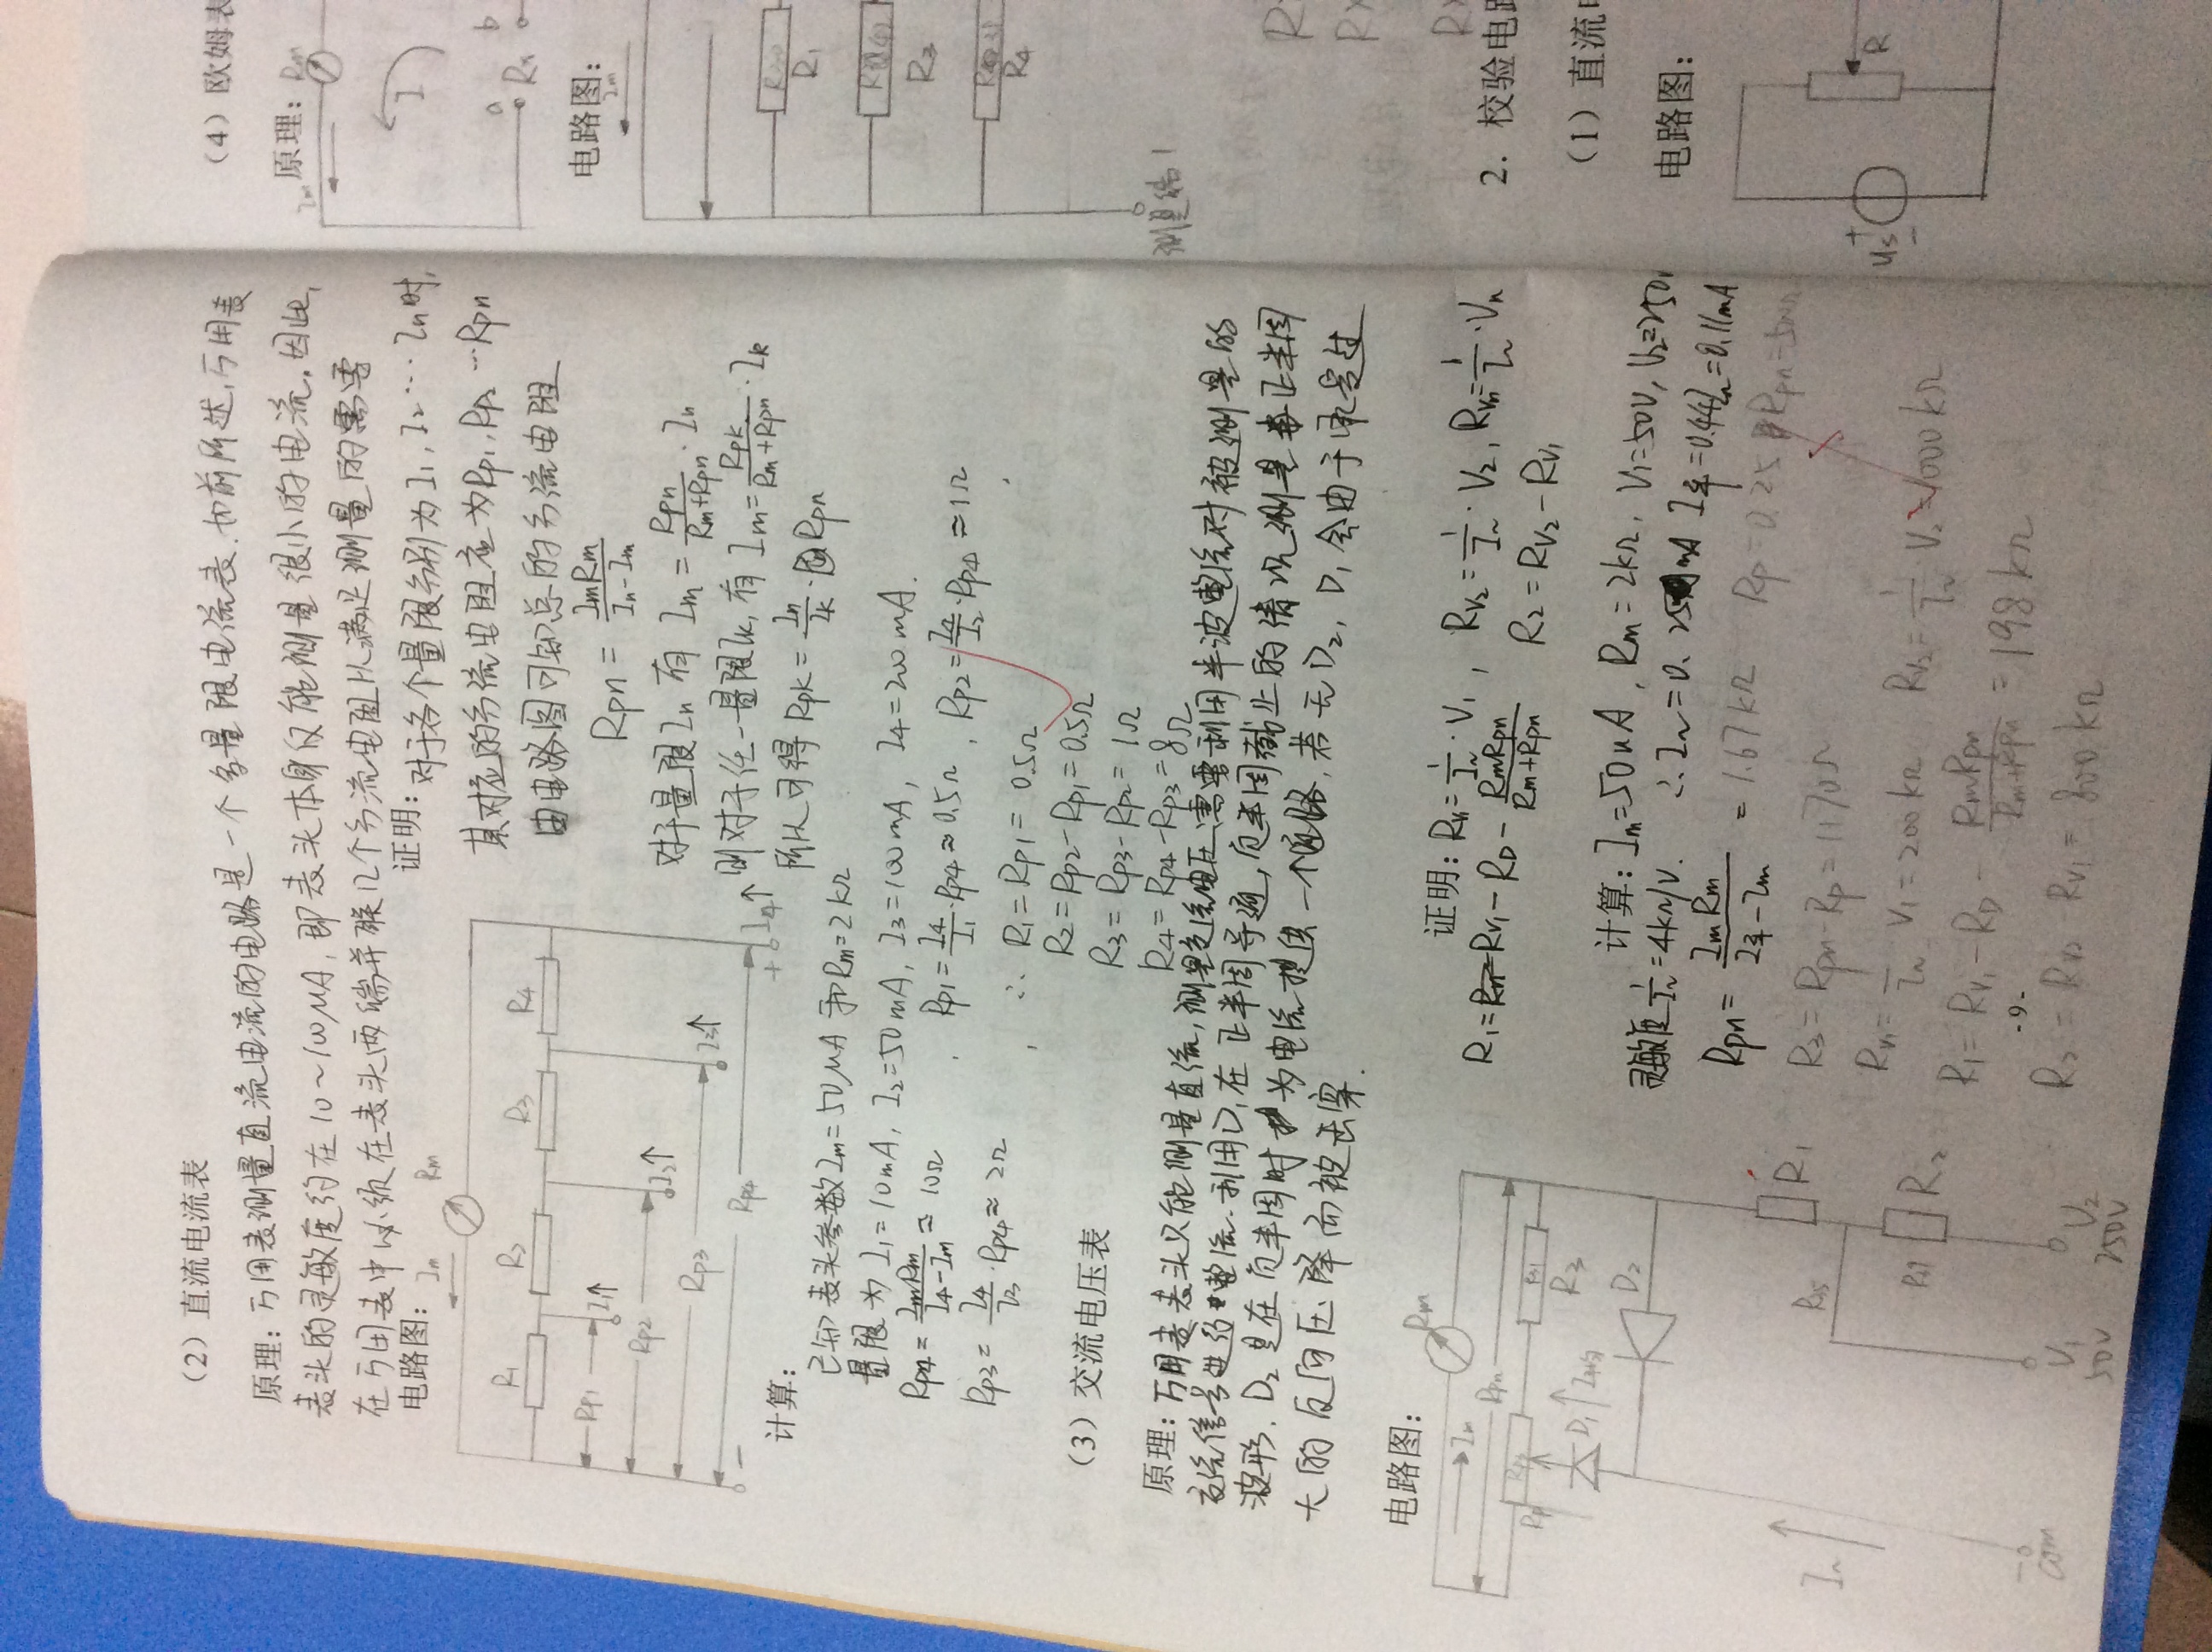 （2）直流电流表
原理：万用表测量直流电流的电路是一个多量限电流表.如前所述,万用表
表头的灵敏度约在10~100μA,即表头本身仅能测量很小的电流.因此,
在万用表中必须在表头两端并联几个分流电阻以满足测量的需要
电路图：
Im Rm
R1 R2 R3 R4
Rp1 I1↑
Rp2 I2↑
Rp3 I3↑
Rp4
− + I4↑
证明：对于各个量限分别为I1, I2 … In时,
其对应的分流电阻应为Rp1, Rp2 …Rpn
由电路图可知总的分流电阻
Rpn = ImRm/(In-Im)
对于量限In 有 Im = Rpn/(Rm+Rpn) · In
则对于任一量限Ik, 有 Im = Rpk/(Rm+Rpn) · Ik
所以可得 Rpk = In/Ik · Rpn
计算：
已知表头参数Im=50μA 和Rm=2kΩ
量限为 I1=10mA, I2=50mA, I3=100mA, I4=200mA.
Rp4 = ImRm/(I4-Im) ≈ 10Ω , Rp1 = I4/I1 · Rp4 ≈ 0.5Ω , Rp2 = I4/I2 · Rp4 ≈ 1Ω
Rp3 = I4/I3 · Rp4 ≈ 2Ω
, ∴ R1 = Rp1 = 0.5Ω
R2 = Rp2-Rp1 = 0.5Ω
R3 = Rp3-Rp2 = 1Ω
R4 = Rp4-Rp3 = 8Ω
（3）交流电压表
原理：万用表表头只能测量直流,测量交流电压需要利用半波整流对被测量的
交流信号进行整流.利用D1在正半周导通,负半周截止的情况测量正半周
波形. D2是在负半周时为电流提供一个通路,若无D2, D1会由于承受过
大的反向压降而被击穿.
电路图：
Rm
Im
Rpn
Rp R3
D1 I平均
D2
R1
I~
R2
com
V1
50V
V2
250V
证明：Rv1 = 1/I~ · V1 , Rv2 = 1/I~ · V2, Rvn = 1/I~ · Vn
R1 = Rv1-RD - RmRpn/(Rm+Rpn) R2 = Rv2-Rv1
计算：Im=50uA , Rm=2kΩ, V1=50V, V2=250
灵敏度 1/I~ = 4kΩ/V. ∴I~=0.25mA I平=0.44I~=0.11mA
Rpn = ImRm/(I平-Im) = 1.67kΩ Rp=0.25 Rpn=500Ω
R3 = Rpn-Rp = 1170Ω
Rv1 = 1/I~ V1 = 200kΩ Rv2 = 1/I~ · V2 = 1000kΩ
R1 = Rv1-RD - RmRpn/(Rm+Rpn) = 198kΩ
-9-
R2 = Rv2 Rv1 = 800kΩ
（4）欧姆表
原理：
Im Rm
I
a b
Rx
电路图：
Im
R1
R3
R4
测量端1
2. 校验电路
（1）直流电
电路图：
Us
+
−
R